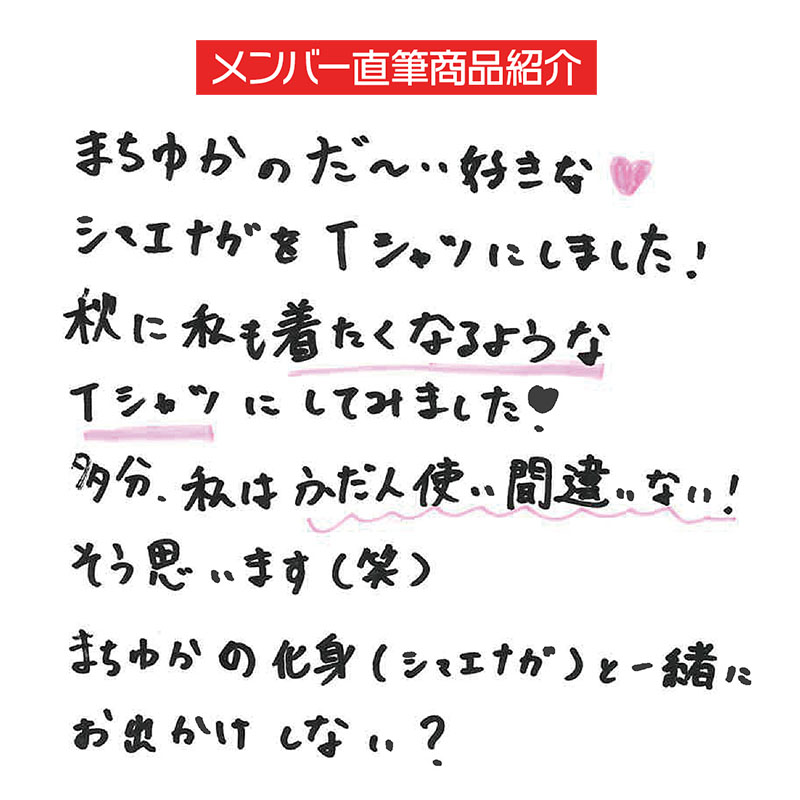 メンバー直筆商品紹介
まちゆかのだ〜‥好きな♥
シマエナガをTシャツにしました!
秋に私も着たくなるような
Tシャツにしてみました♥
多分、私はふだん使い間違いない!
そう思います(笑)
まちゆかの化身(シマエナガ)と一緒に
お出かけしない?